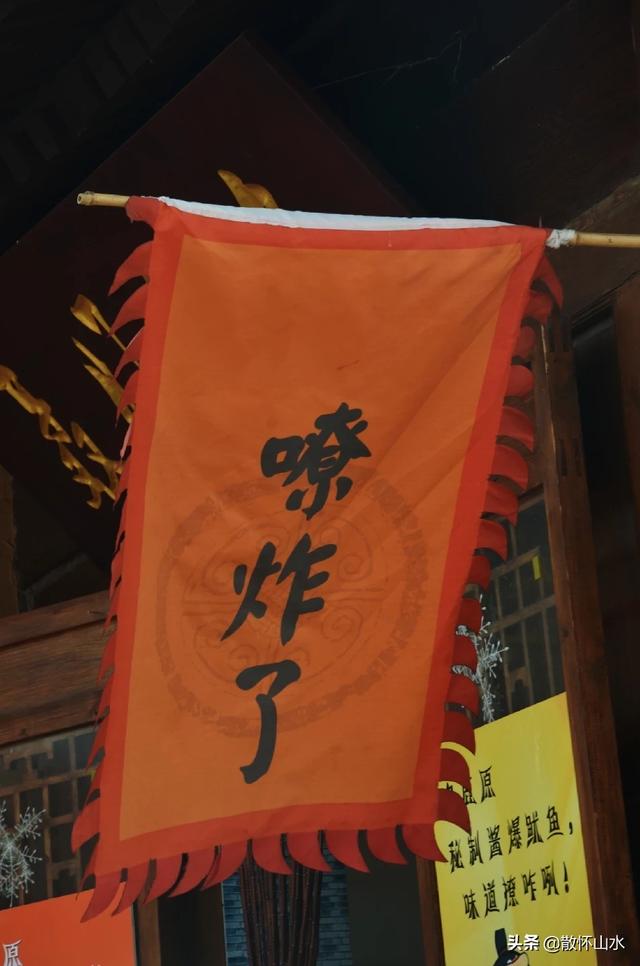 嘹炸了
原
秘制酱爆鱿鱼,
味道撩咋咧!
原
头条 @散怀山水